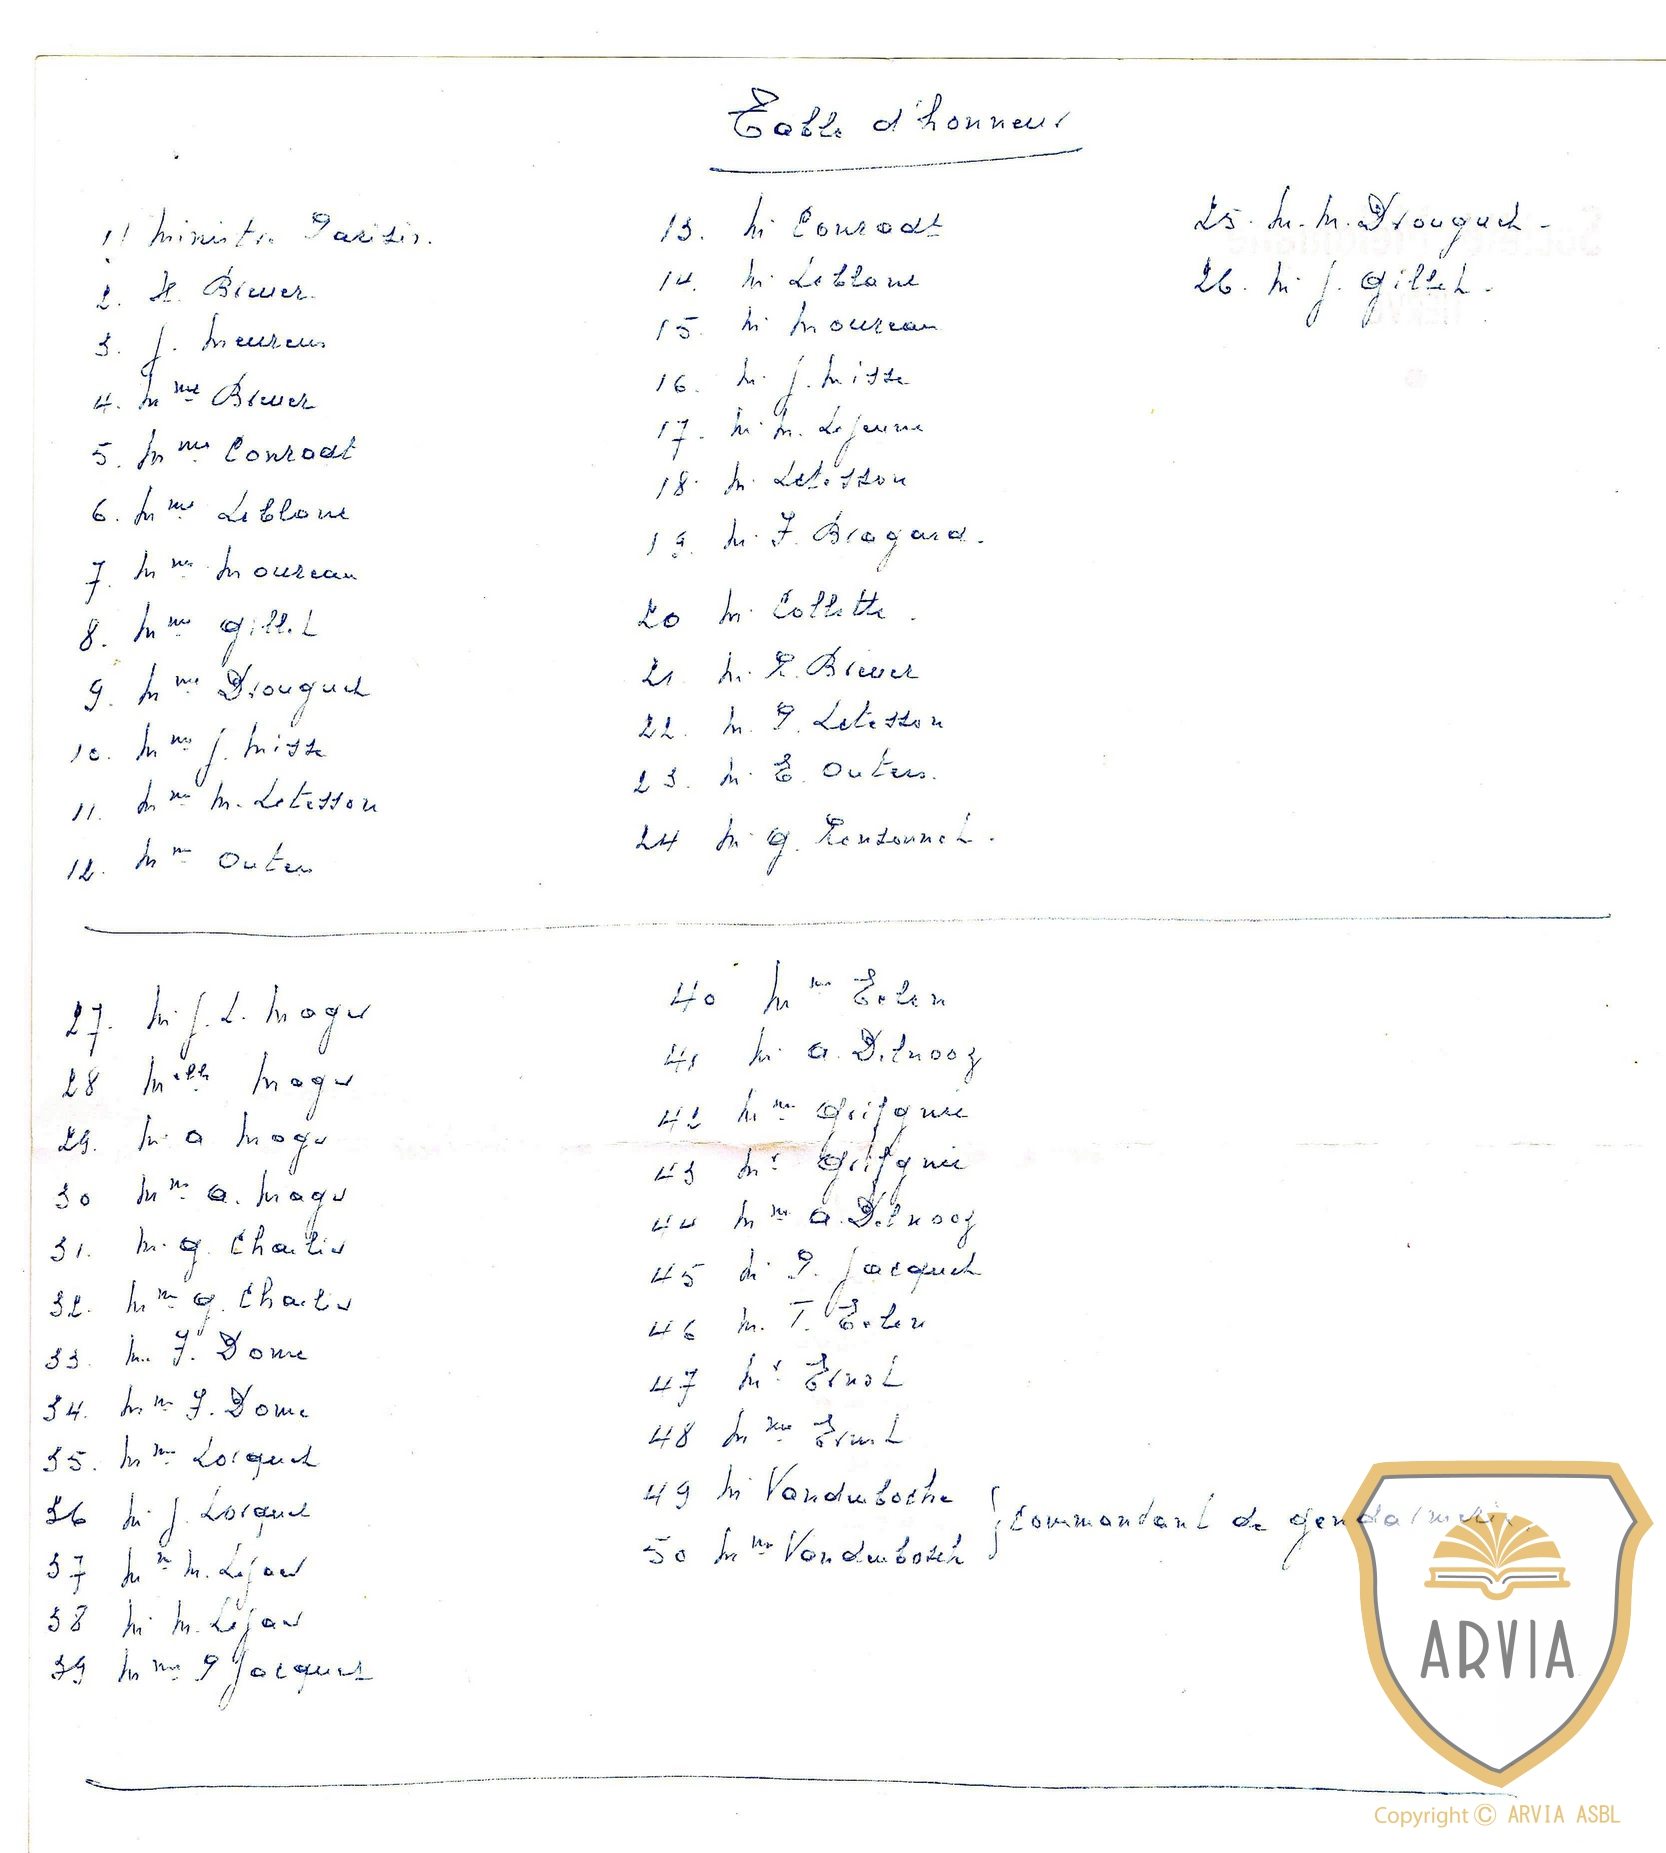 Table d'honneur
1) Ministre Parisis.
2. H. Biewer.
3. J. Meureus
4. Mme Biewer
5. Mme Conradt
6. Mme Leblanc
7. Mme Moureau
8. Mme Gillet
9. Mme Drouguet
10. Mme J. Misse
11. Mme M. Letesson
12. Mme Outers
13. M Conradt
14. M. Leblanc
15. M Moureau
16. M. J. Misse
17. M. M. Lejeune
18. M. Letesson
19. M. F. Bragard.
20 M. Collette.
21 M. R. Biewer
22. M. P. Letesson
23. M. E. Outers.
24 M. G. Ransonnet.
25. M. M. Drouguet.
26. M J. Gillet.
27. M. J. L. Mager
28 Melle Mager
29. M. A Mager
30 Mme A. Mager
31. M. G. Charlier
32. Mme G. Charlier
33. M. F. Dome
34. Mme F. Dome
35. Mme Lorquet
36 M. J. Lorquet
37 Mme M. Lejaer
38 M. M. Lejaer
39 Mme P Jacquet
40 Mme Eelen
41 M. A. Delnooz
42 Mme Grifgnée
43 Mr Grifgnée
44 Mme A. Delnooz
45 M. P. Jacquet
46 M. T. Eelen
47 Mr Ernst
48 Mme Ernst
49 M Vandenbosche
50 Mme Vandenbosch } Commandant de gendarmerie.
ARVIA
Copyright © ARVIA ASBL